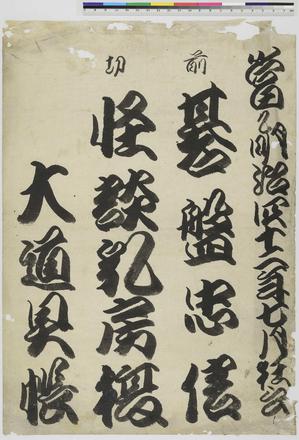 當ル明治四十二年七月狂言
前
碁盤忠信
切
怪談乳房榎
大道具帳